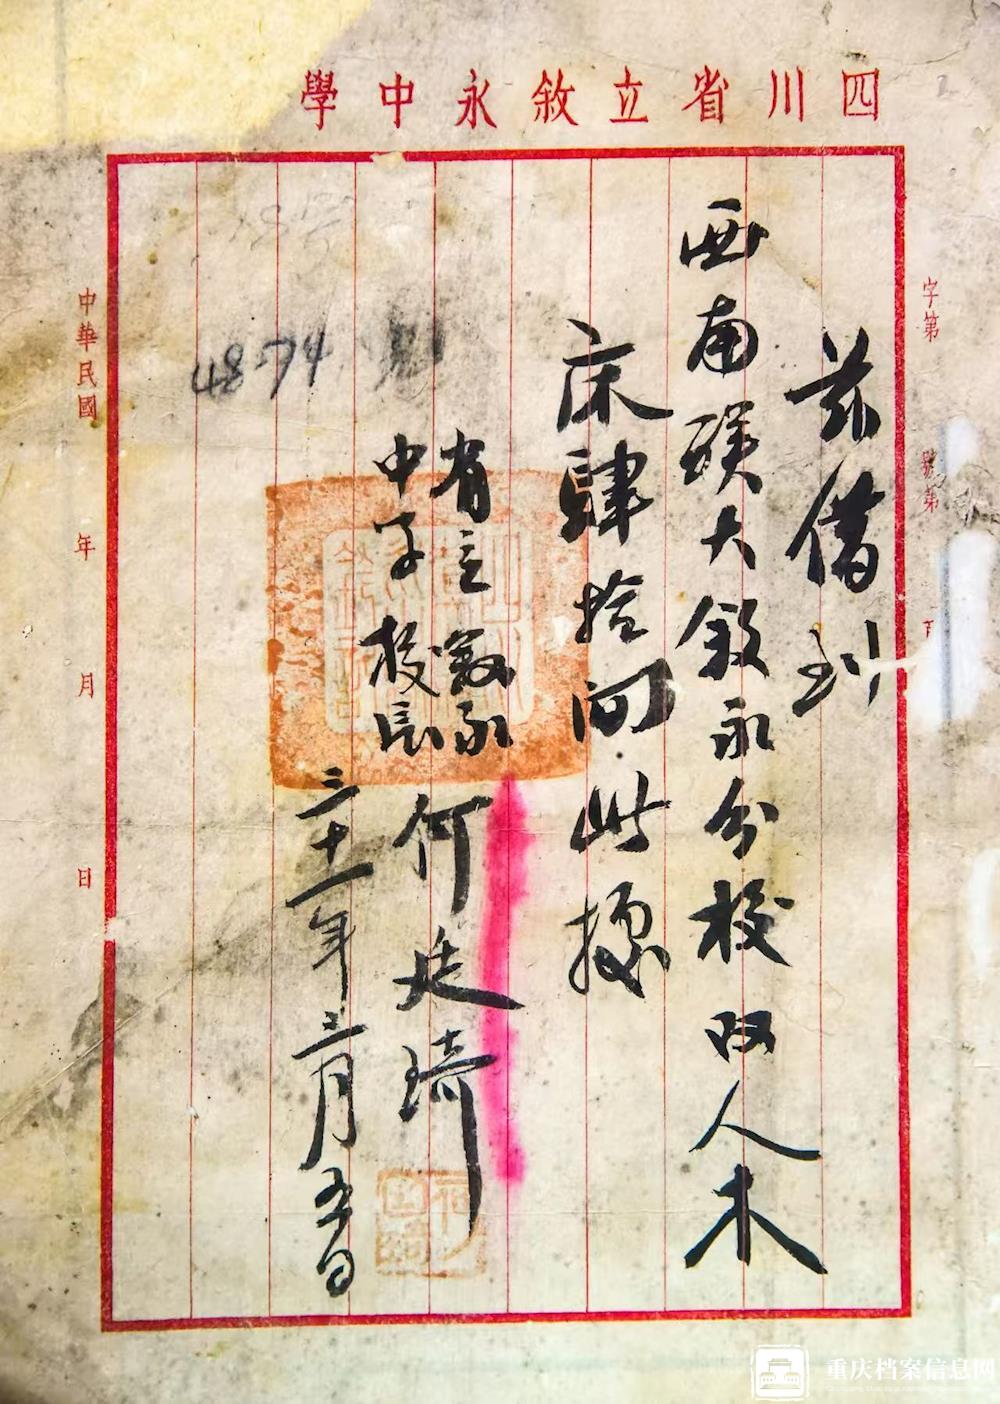 四川省立敘永中學
字第
號第
頁
茲借到
西南聯大敘永分校双人木
床肆拾间此據
省立敘永
中学校長
何廷琦
三十一年三月五日
4874
中華民國 年 月 日
重庆档案信息网